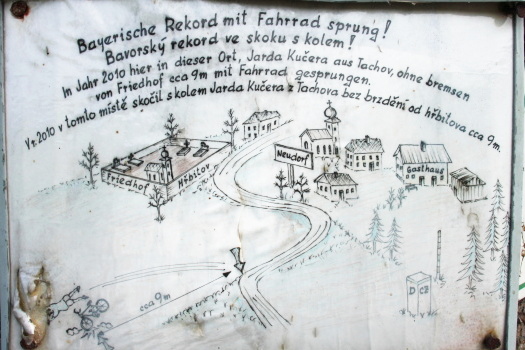 Bayerische Rekord mit Fahrrad sprung!
Bavorský rekord ve skoku s kolem!
In Jahr 2010 hier in dieser Ort, Jarda Kučera aus Tachov, ohne bremsen
von Friedhof cca 9m mit Fahrrad gesprungen.
V r. 2010 v tomto místě skočil s kolem Jarda Kučera z Tachova bez brzdění od hřbitova cca 9m.
Neudorf
Gasthaus
Friedhof
Hřbitov
cca 9m
D CZ